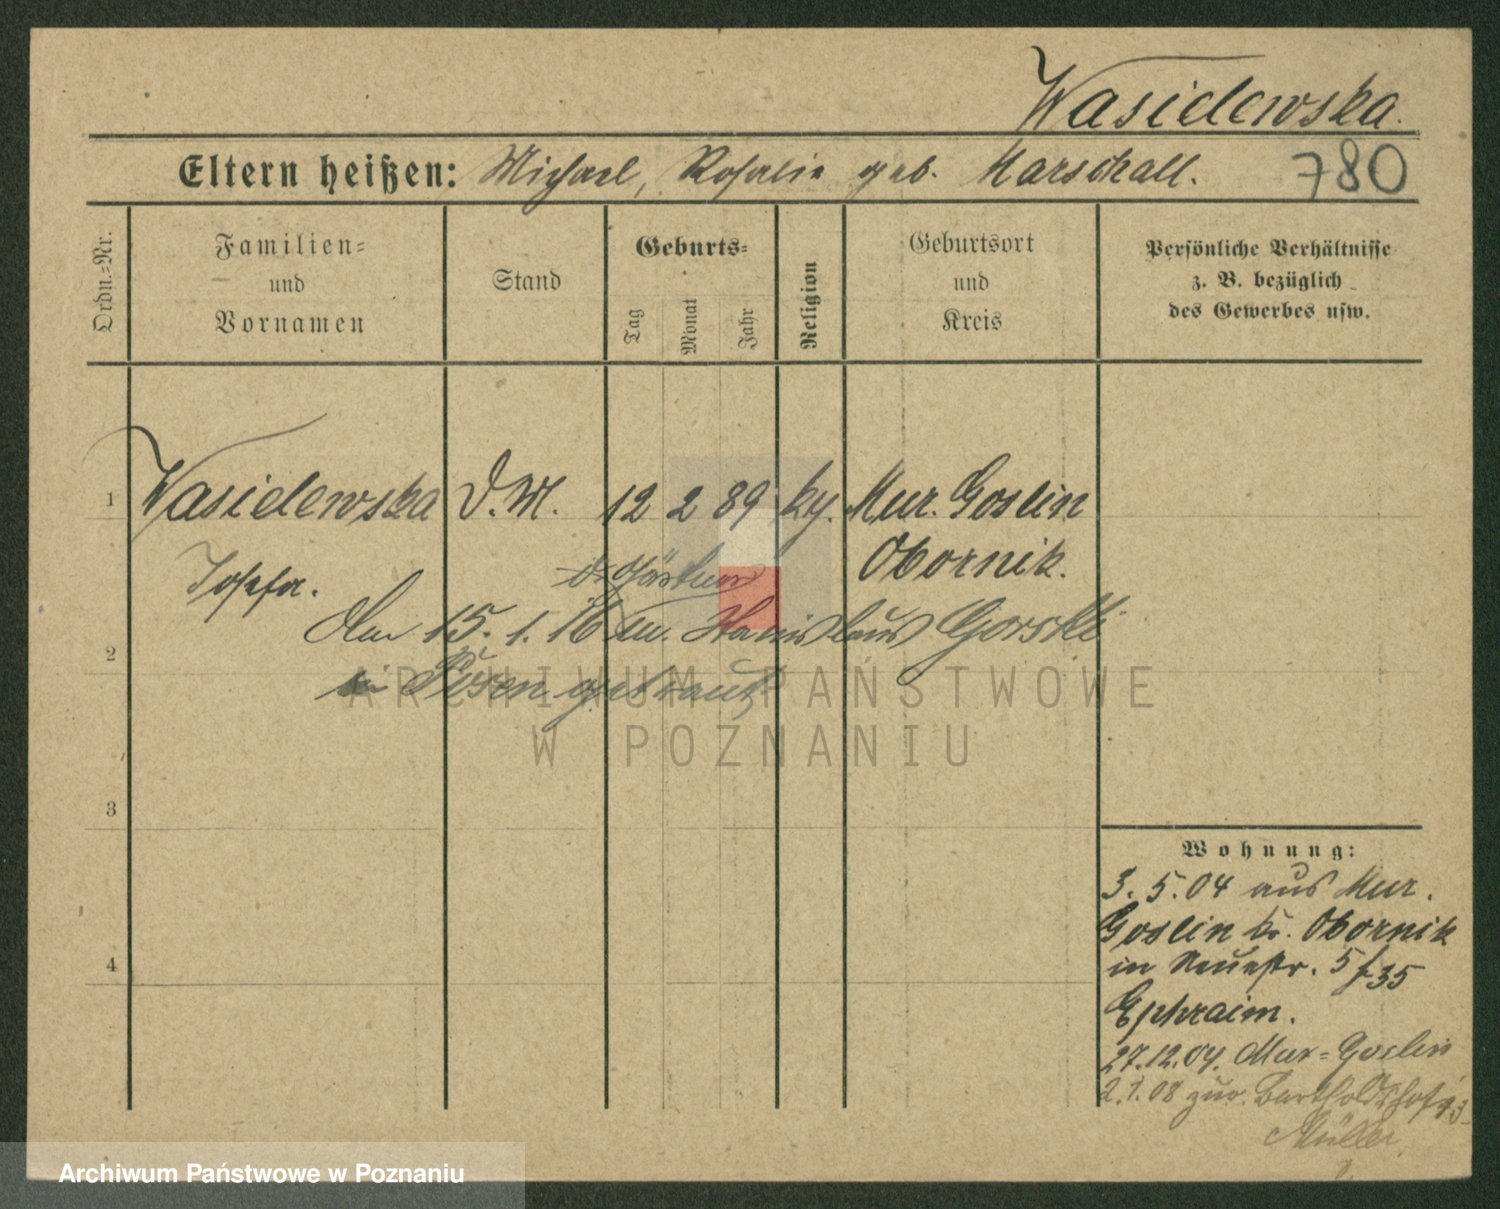 Wasielewska.
Eltern heißen: Michael, Rosalie geb. Marschall. 780
Ordn.-Nr.
Familien-
und
Vornamen
Stand
Geburts-
Tag
Monat
Jahr
Religion
Geburtsort
und
Kreis
Persönliche Verhältnisse
z. B. bezüglich
des Gewerbes usw.
1 Wasielewska D.M. 12 2 89 kth. Mur. Goslin
Josefa. Obornik.
d. Gärtner
Am 15. 1. 16 m. Stanislaus Gorski
2
in Posen getraut
3
4
Wohnung:
3. 5. 04 aus Mur.
Goslin Kr. Obornik
in Neuestr. 5 f 35
Ephraim.
27.12.04. Mur-Goslin
2.1.08 zur. Bartholdshof 13
Müller.
ARCHIWUM PAŃSTWOWE
W POZNANIU
Archiwum Państwowe w Poznaniu